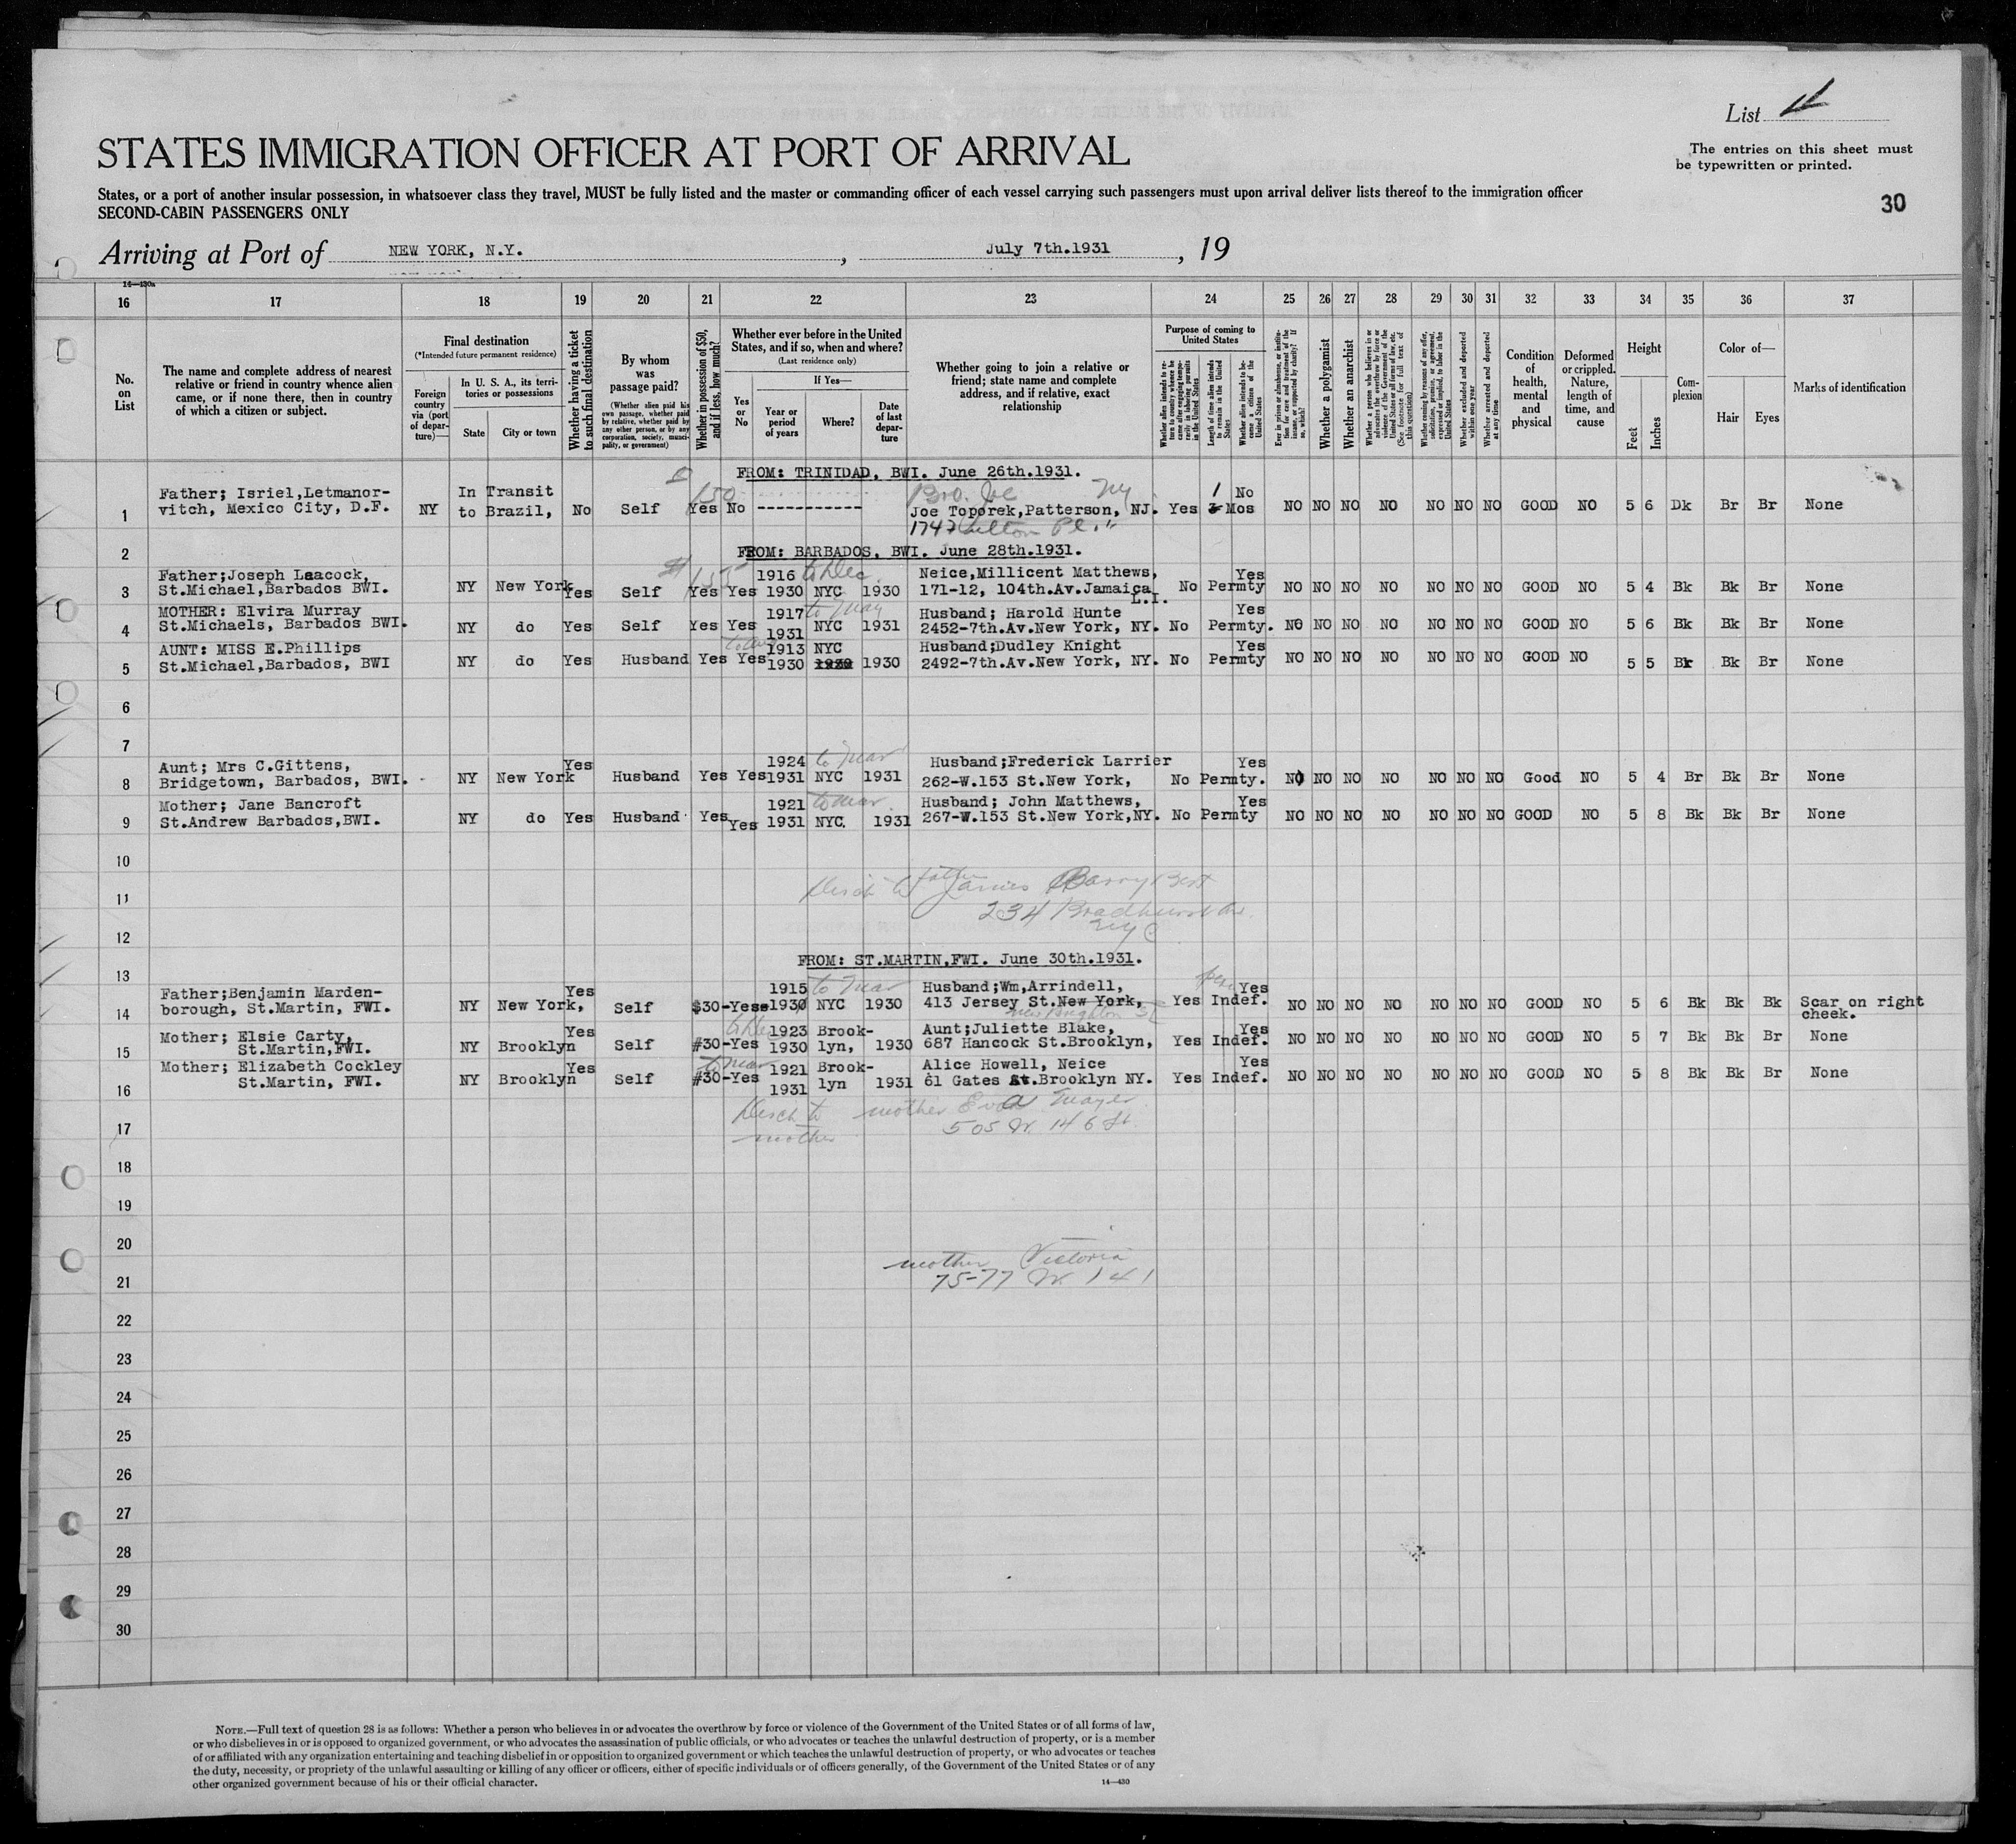 List
STATES IMMIGRATION OFFICER AT PORT OF ARRIVAL
The entries on this sheet must
be typewritten or printed.
States, or a port of another insular possession, in whatsoever class they travel, MUST be fully listed and the master or commanding officer of each vessel carrying such passengers must upon arrival deliver lists thereof to the immigration officer
SECOND-CABIN PASSENGERS ONLY
30
Arriving at Port of NEW YORK, N.Y. , July 7th.1931 , 19
14—430a
16 17 18 19 20 21 22 23 24 25 26 27 28 29 30 31 32 33 34 35 36 37
No. on List
The name and complete address of nearest relative or friend in country whence alien came, or if none there, then in country of which a citizen or subject.
Final destination
(*Intended future permanent residence)
Foreign country via (port of departure)—
In U. S. A., its territories or possessions
State
City or town
Whether having a ticket to such final destination
By whom was passage paid?
(Whether alien paid his own passage, whether paid by relative, whether paid by any other person, or by any corporation, society, municipality, or government)
Whether in possession of $50, and if less, how much?
Whether ever before in the United States, and if so, when and where?
(Last residence only)
Yes or No
If Yes—
Year or period of years
Where?
Date of last departure
Whether going to join a relative or friend; state name and complete address, and if relative, exact relationship
Purpose of coming to United States
Whether alien intends to return to country whence he came after engaging temporarily in laboring pursuits in the United States
Length of time alien intends to remain in the United States
Whether alien intends to become a citizen of the United States
Ever in prison or almshouse, or institution for care and treatment of the insane, or supported by charity? If so, which?
Whether a polygamist
Whether an anarchist
Whether a person who believes in or advocates the overthrow by force or violence of the Government of the United States or all forms of law, etc. (See footnote for full text of this question)
Whether coming by reasons of any offer, solicitation, promise, or agreement, expressed or implied, to labor in the United States
Whether excluded and deported within one year
Whether arrested and deported at any time
Condition of health, mental and physical
Deformed or crippled. Nature, length of time, and cause
Height
Feet
Inches
Complexion
Color of—
Hair
Eyes
Marks of identification
FROM: TRINIDAD, BWI. June 26th.1931.
Father; Isriel,Letmanor- In Transit 150 Bro. Joe NY 1 No
1 vitch, Mexico City, D.F. NY to Brazil, No Self Yes No ----------- Joe Toporek,Patterson, NJ. Yes 3 Mos NO NO NO NO NO NO NO GOOD NO 5 6 Dk Br Br None
2 FROM: BARBADOS, BWI. June 28th.1931.
Father;Joseph Laacock, 1916 to Dec. Neice,Millicent Matthews, Yes
3 St.Michael,Barbados BWI. NY New York Yes Self Yes Yes 1930 NYC 1930 171-12, 104th.Av.Jamaica L.I. No Permty NO NO NO NO NO NO NO GOOD NO 5 4 Bk Bk Br None
MOTHER: Elvira Murray 1917 to May Husband; Harold Hunte Yes
4 St.Michaels, Barbados BWI. NY do Yes Self Yes Yes 1931 NYC 1931 2452-7th.Av.New York, NY. No Permty. NO NO NO NO NO NO NO GOOD NO 5 6 Bk Bk Br None
AUNT: MISS E.Phillips 1913 NYC Husband;Dudley Knight Yes
5 St.Michael,Barbados, BWI NY do Yes Husband Yes Yes 1930 1930 1930 2492-7th.Av.New York, NY. No Permty NO NO NO NO NO NO NO GOOD NO 5 5 Bk Bk Br None
6
7
Aunt; Mrs C.Gittens, Yes 1924 to Mar Husband;Frederick Larrier Yes
8 Bridgetown, Barbados, BWI. NY New York Husband Yes Yes 1931 NYC 1931 262-W.153 St.New York, No Permty. NO NO NO NO NO NO NO Good NO 5 4 Br Bk Br None
Mother; Jane Bancroft 1921 to Mar. Husband; John Matthews, Yes
9 St.Andrew Barbados,BWI. NY do Yes Husband Yes Yes 1931 NYC. 1931 267-W.153 St.New York,NY. No Permty NO NO NO NO NO NO NO GOOD NO 5 8 Bk Bk Br None
10
11 Disch to father James Barry
234 Bradhurst Av.
12 NYC
FROM: ST.MARTIN,FWI. June 30th.1931.
13
Father;Benjamin Marden- Yes 1915 to Mar Husband;Wm,Arrindell, Yes
14 borough, St.Martin, FWI. NY New York, Self $30-Yes 1930 NYC 1930 413 Jersey St.New York, Yes Indef. NO NO NO NO NO NO NO GOOD NO 5 6 Bk Bk Bk Scar on right cheek.
New Brighton
Mother; Elsie Carty, Yes 1923 Brook- Aunt;Juliette Blake, Yes
15 St.Martin,FWI. NY Brooklyn Self #30-Yes 1930 lyn, 1930 687 Hancock St.Brooklyn, Yes Indef. NO NO NO NO NO NO NO GOOD NO 5 7 Bk Bk Br None
Mother; Elizabeth Cockley Yes to Mar 1921 Brook- Alice Howell, Neice Yes
16 St.Martin, FWI. NY Brooklyn Self #30-Yes 1931 lyn 1931 61 Gates At.Brooklyn NY. Yes Indef. NO NO NO NO NO NO NO GOOD NO 5 8 Bk Bk Br None
Disch to mother Eva Mayer
17 mother 505 W. 146 St.
18
19
20
mother Victoria
21 75-77 W 141
22
23
24
25
26
27
28
29
30
NOTE.—Full text of question 28 is as follows: Whether a person who believes in or advocates the overthrow by force or violence of the Government of the United States or of all forms of law,
or who disbelieves in or is opposed to organized government, or who advocates the assassination of public officials, or who advocates or teaches the unlawful destruction of property, or is a member
of or affiliated with any organization entertaining and teaching disbelief in or opposition to organized government or which teaches the unlawful destruction of property, or who advocates or teaches
the duty, necessity, or propriety of the unlawful assaulting or killing of any officer or officers, either of specific individuals or of officers generally, of the Government of the United States or of any
other organized government because of his or their official character.
14—430